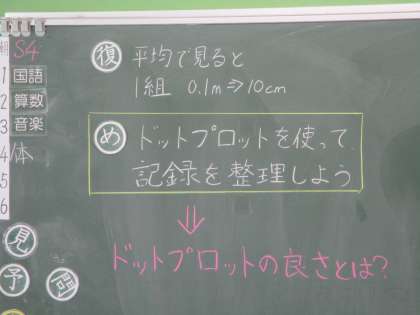 S4
1 国語
2 算数
3 音楽
4 体
5
6
見
予
問
復 平均で見ると
1組 0.1m⇒10cm
め ドットプロットを使って
記録を整理しよう
⇓
ドットプロットの良さとは?